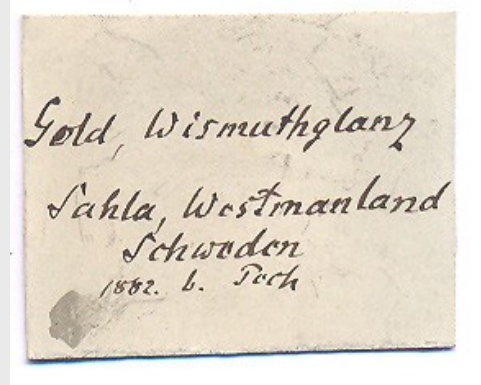 Gold, Wismuthglanz
Sahla, Westmanland
Schweden
1882. b. Pech